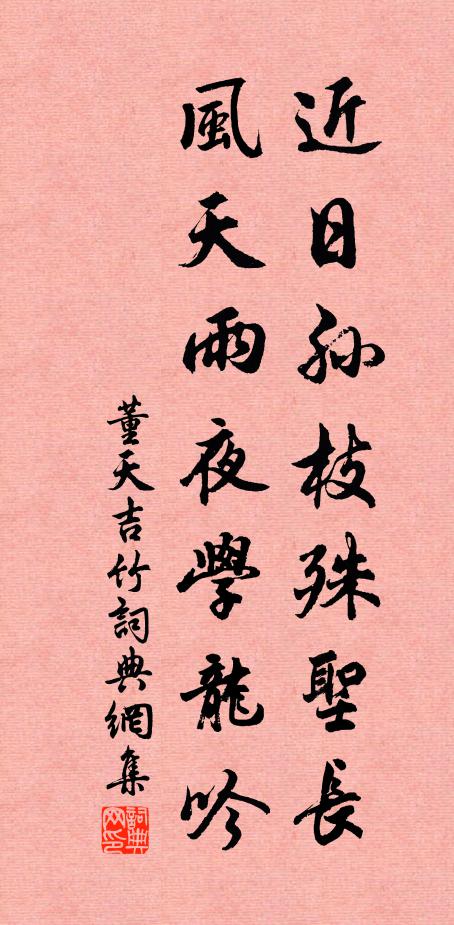 近日孙枝殊聖長
風天雨夜學龍吟
董天吉竹詞典網集
詞典网印